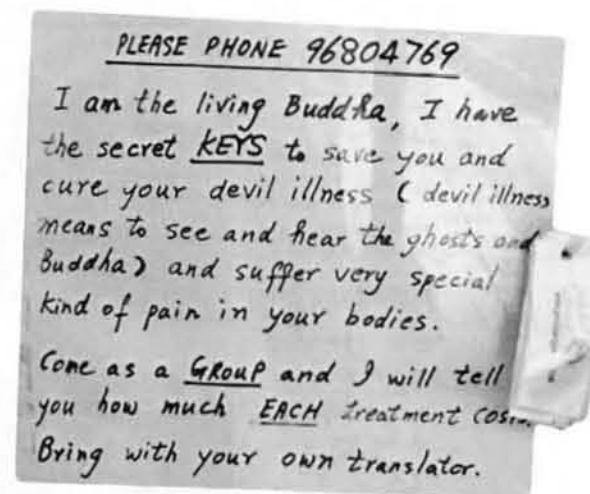 PLEASE PHONE 96804769
I am the living Buddha, I have
the secret KEYS to save you and
cure your devil illness ( devil illness
means to see and hear the ghosts and
Buddha) and suffer very special
kind of pain in your bodies.
Come as a GROUP and I will tell
you how much EACH treatment costs.
Bring with your own translator.